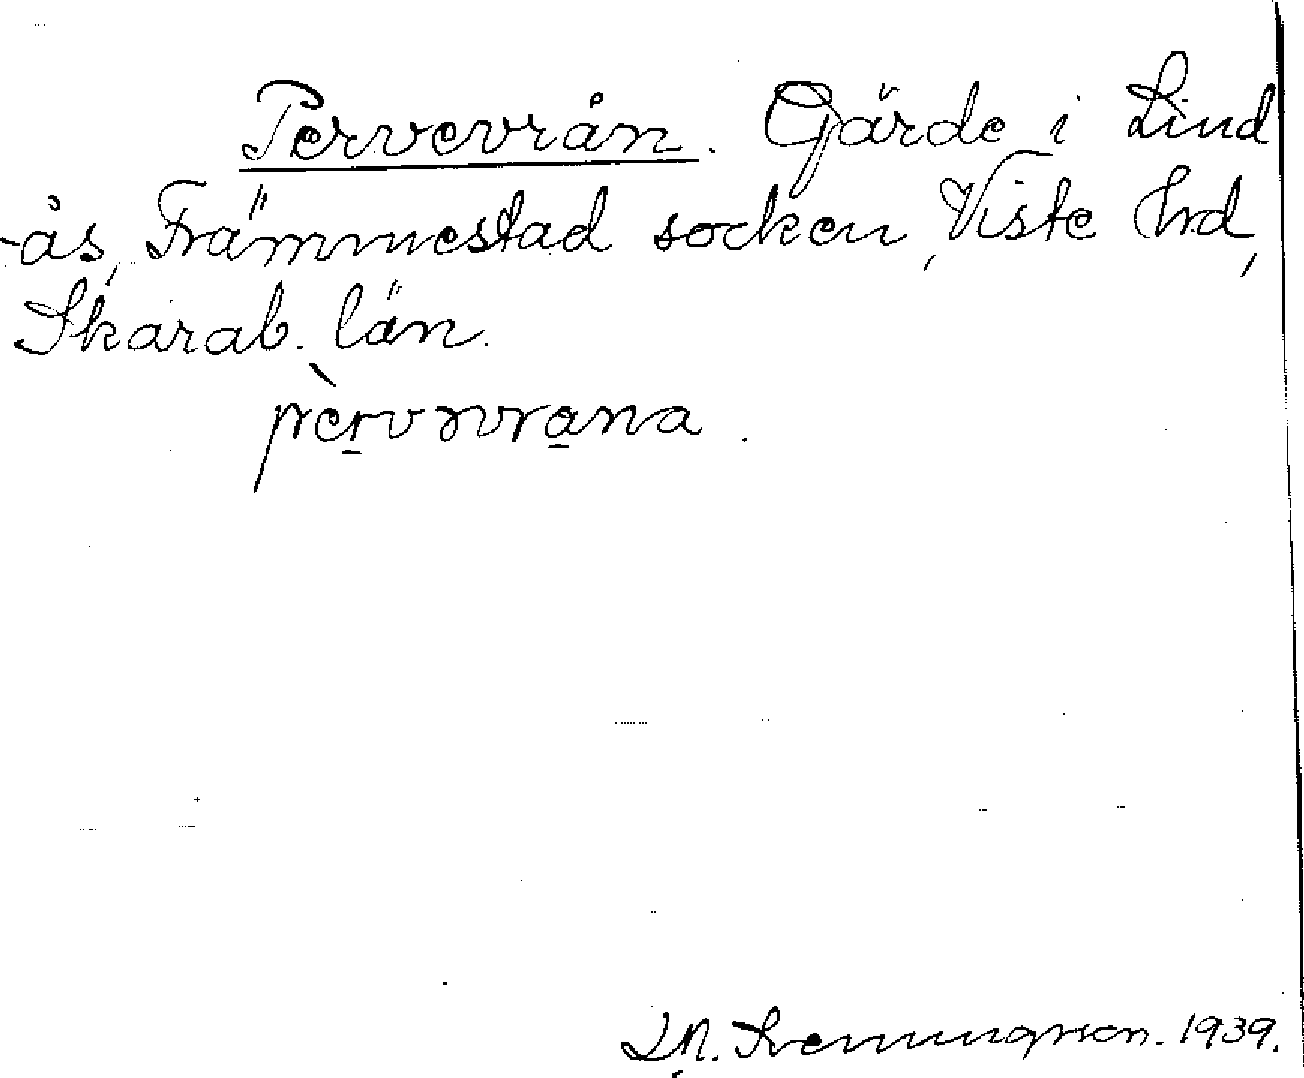 Pervevrån. Gärde i Lind
-ås, Främmestad socken, Viste Hrd,
Skarab. län.
pèrvəvrana.
Svenungsson. 1939.